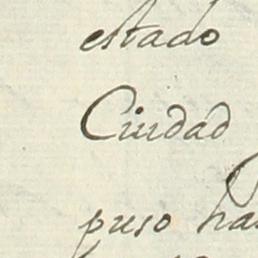 estado
Ciudad
puso